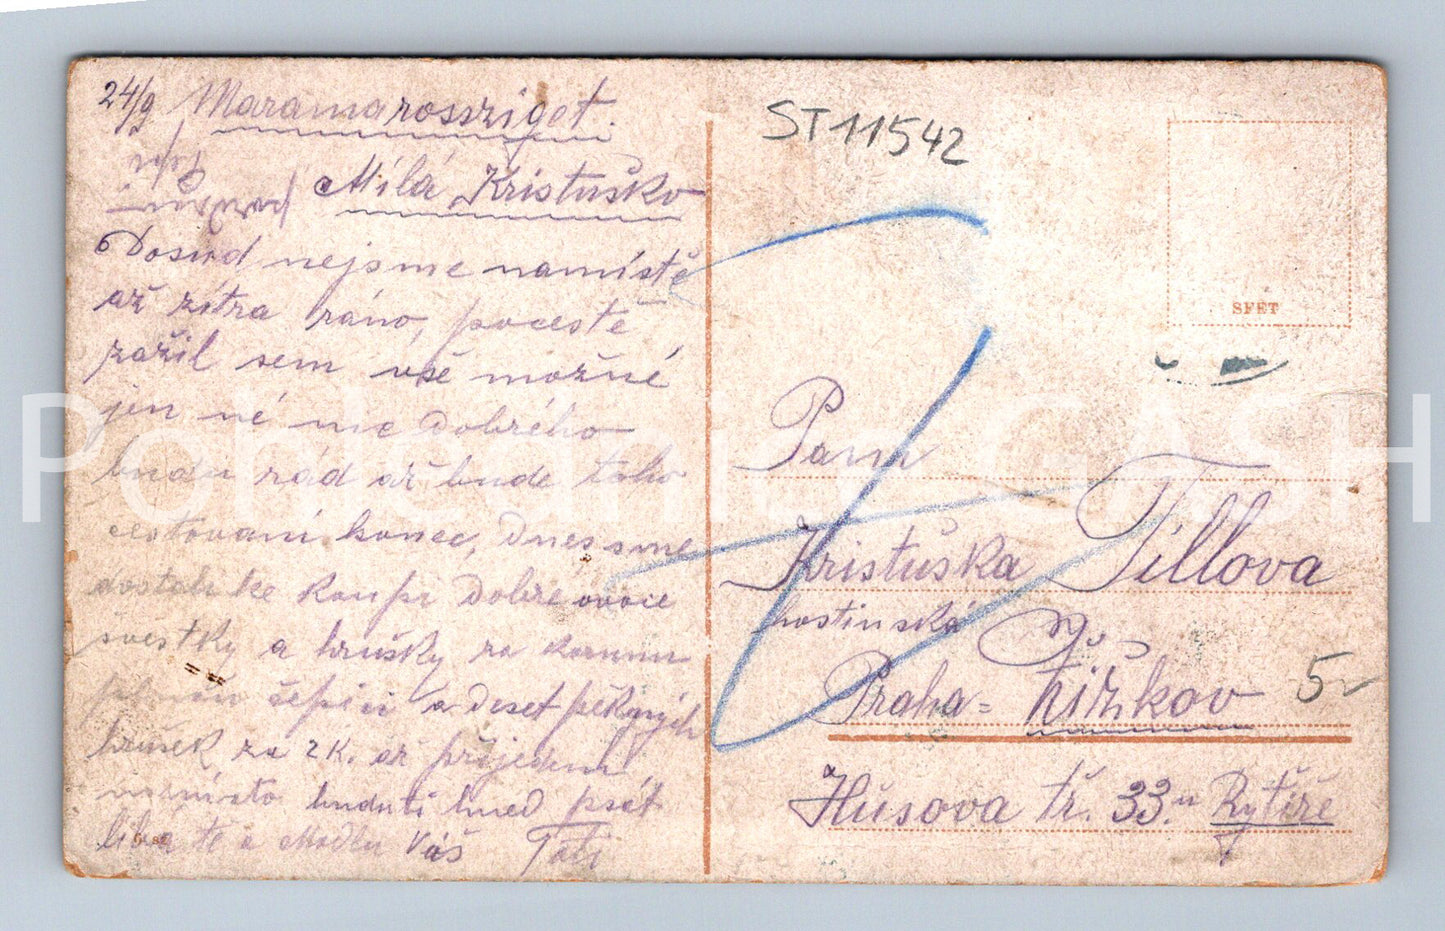 24/9 Maramarossziget.
Milá Kristuško
Dosud nejsme namístě
až zítra ráno, pocestě
zažil sem vše možné
jen né nic dobrého
budu rád až bude toho
cestovaní konec, Dnes sme
dostali ke koupi dobré ovoce
švestky a hrušky za korunu
plnou čepici a deset pěkných
hrušek za 2K. až přijedem
namísto budu ti hned psát
líbá tě a Mádlu Váš Táta
ST11542
SFÉT
Paní
Kristuška Tillova
hostinská
Praha = Žižkov
5-
Húsova tř. 33. u Rytíře
Pohlednice GASH